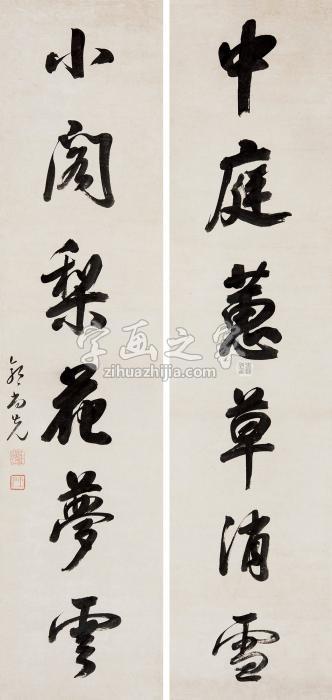 中庭蕙草消雪
小阁梨花梦云
郭尚先
字画之家
zihuazhijia.com